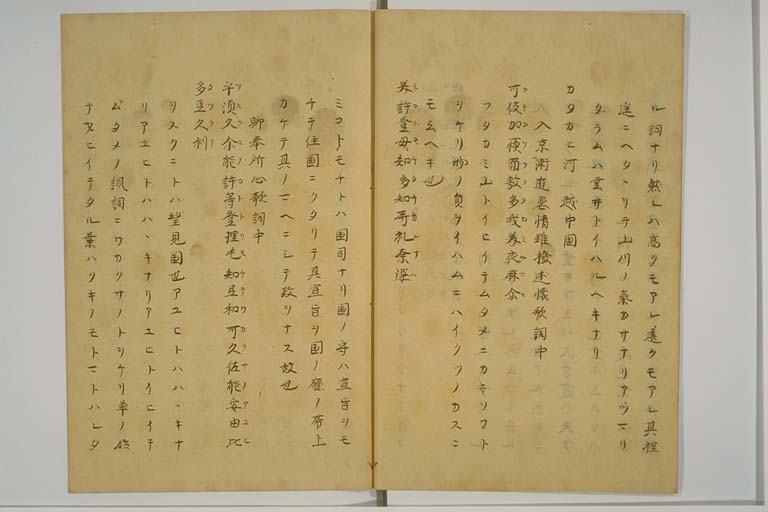 ル詞ナリ然レハ高クモアレ遠クモアレ其程
遥ニヘタヽリテ山川ノ氣カサナリアツマリ
タラムハ雲井トイハルヘキナリ
カタカヒ河 越中国
入京漸近悲情難撥述懐歌詞中
可伎加蘓布敷多我美夜麻尓
フタカミ山トイヒイテムタメニカキカソフト
ツケリ物ノ員タイハムニハイクツノカスニ
モ云ヘキ也
美許登母知多知和可礼奈婆
ミコトモチトハ国司ナリ国ノ守ハ宣旨ヲモ
チテ任国ニクタリテ其宣旨ヲ国ノ廳ノ帯上
カケテ其ノマヘニシテ政ヲナス故也
郷奉所心歌詞中
乎須久尓能許等登理毛知弖和可久佐能安由比
多豆久利
ヲスクニトハ望見国也アユヒトハハヽキナ
リアユヒトハハヽキナリアユヒトイヒイテ
ムタメノ諷詞ニワカクサノトツケリ草ノ始
テオヒイテタル葉ハツキノモトマトハレタ